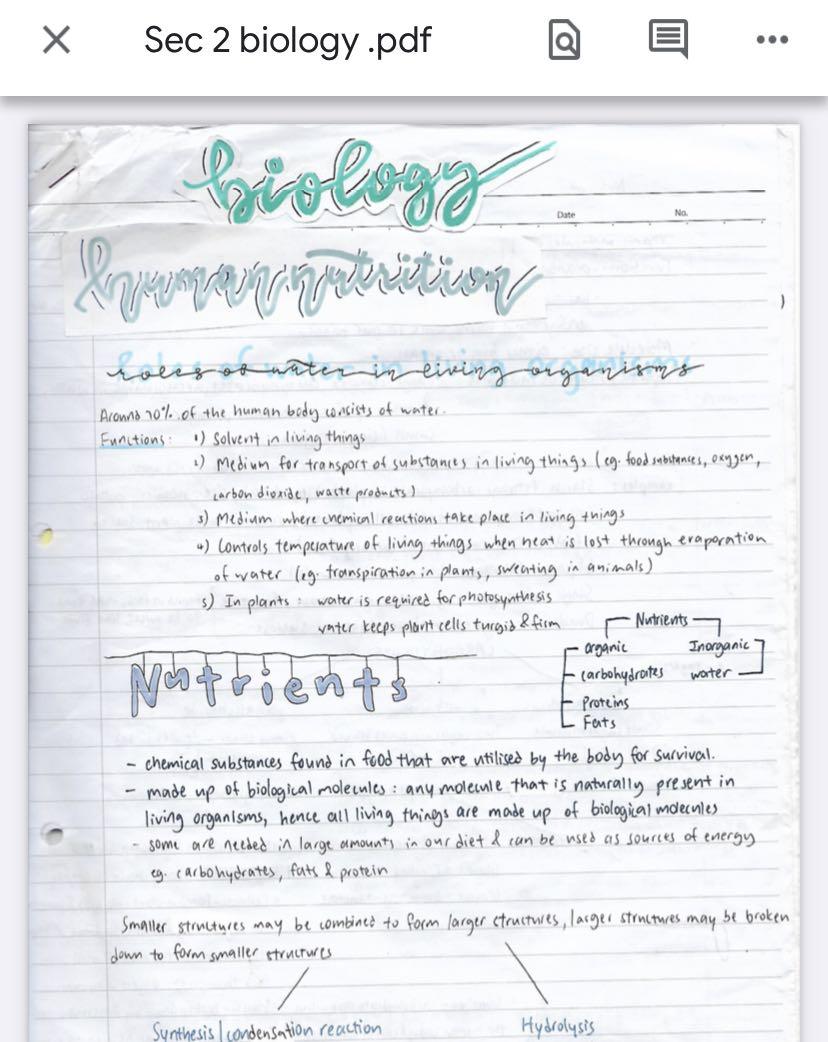 Sec 2 biology .pdf
biology
Date No.
human nutrition
Roles of water in living organisms
Around 70% of the human body consists of water.
Functions: 1) Solvent in living things
2) Medium for transport of substances in living things (eg. food substances, oxygen,
carbon dioxide, waste products)
3) Medium where chemical reactions take place in living things
4) Controls temperature of living things when heat is lost through evaporation
of water (eg. transpiration in plants, sweating in animals)
5) In plants : water is required for photosynthesis
water keeps plant cells turgid & firm
Nutrients
organic Inorganic
carbohydrates water
Proteins
Fats
Nutrients
- chemical substances found in food that are utilised by the body for survival.
- made up of biological molecules : any molecule that is naturally present in
living organisms, hence all living things are made up of biological molecules
- some are needed in large amounts in our diet & can be used as sources of energy
eg. carbohydrates, fats & protein
Smaller structures may be combined to form larger structures, larger structures may be broken
down to form smaller structures
Synthesis | condensation reaction Hydrolysis